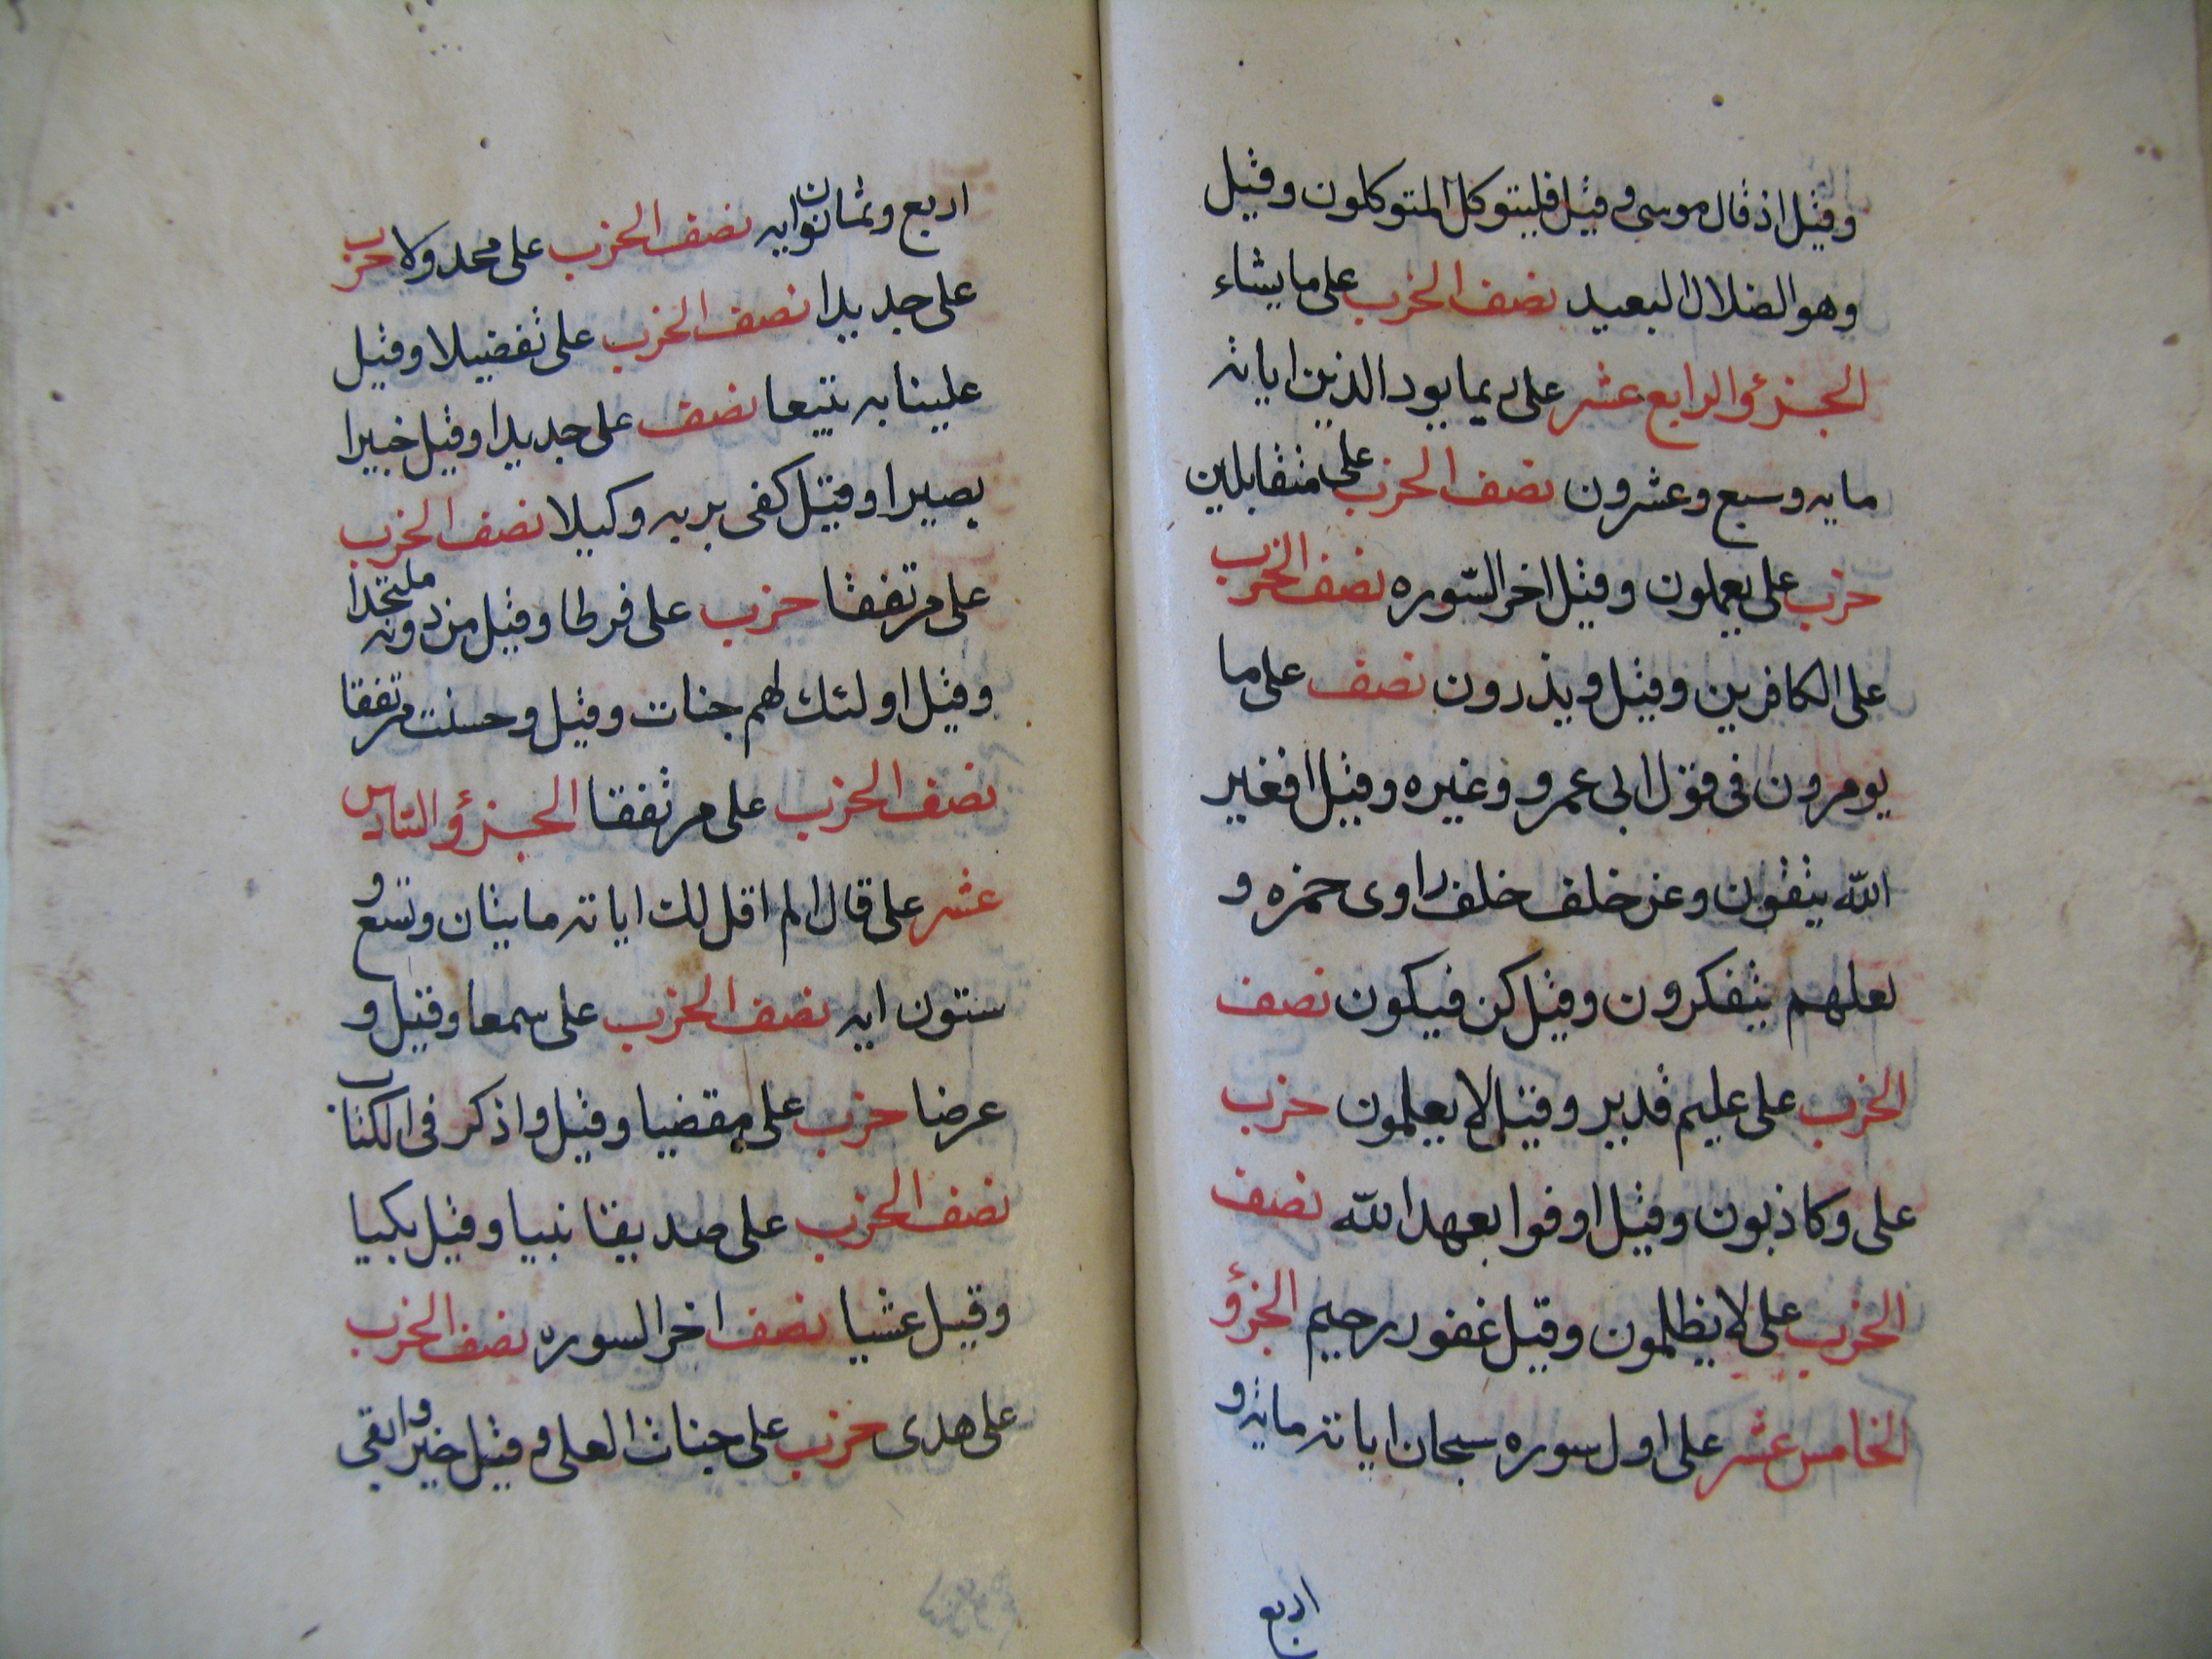 وقيل اذ قال موسى وقيل فليتوكل المتوكلون وقيل
وهو الضلال البعيد نصف الحزب على ما يشاء
الجزؤ الرابع عشر على ربما يود الذين اياته
مايه وسبع وعشرون نصف الحزب على متقابلين
حزب على يعملون وقيل اخر السّوره نصف الحزب
على الكافرين وقيل ويذرون نصف على ما
يومرون فى قول ابى عمرو وغيره وقيل افغير
اللّه يتقون وعن خلف خلف راوى حمزه و
لعلهم يتفكرون وقيل كن فيكون نصف
الحزب على عليم قدير وقيل لا يعلمون حزب
على وكاذبون وقيل اوفوا بعهد اللّه نصف
الحزب على لا يظلمون وقيل غفور رحيم الجزؤ
الخامس عشر على اول سوره سبحان اياته مايه و
اربع
اربع وثمانون ايه نصف الحزب على محذورا حزب
على جديدا نصف الحزب على تفضيلا وقيل
علينا به تبيعا نصف على جديدا وقيل خبيرا
بصيرا وقيل كفى بربه وكيلا نصف الحزب
على مرتفقا حزب على فرطا وقيل من دونه ملتحدا
وقيل اولئك لهم جنات وقيل وحسنت مرتفقا
نصف الحزب على مرتفقا الجزؤ السّادس
عشر على قال الم اقل لك اياته مايتان وتسع و
ستون ايه نصف الحزب على سمعا وقيل و
عرضا حزب على مقضيا وقيل واذكر فى الكتاب
نصف الحزب على صديقا نبيا وقيل بكيا
وقيل عشيا نصف اخر السوره نصف الحزب
على هدى حزب على جنات العلى وقيل خير وابقى